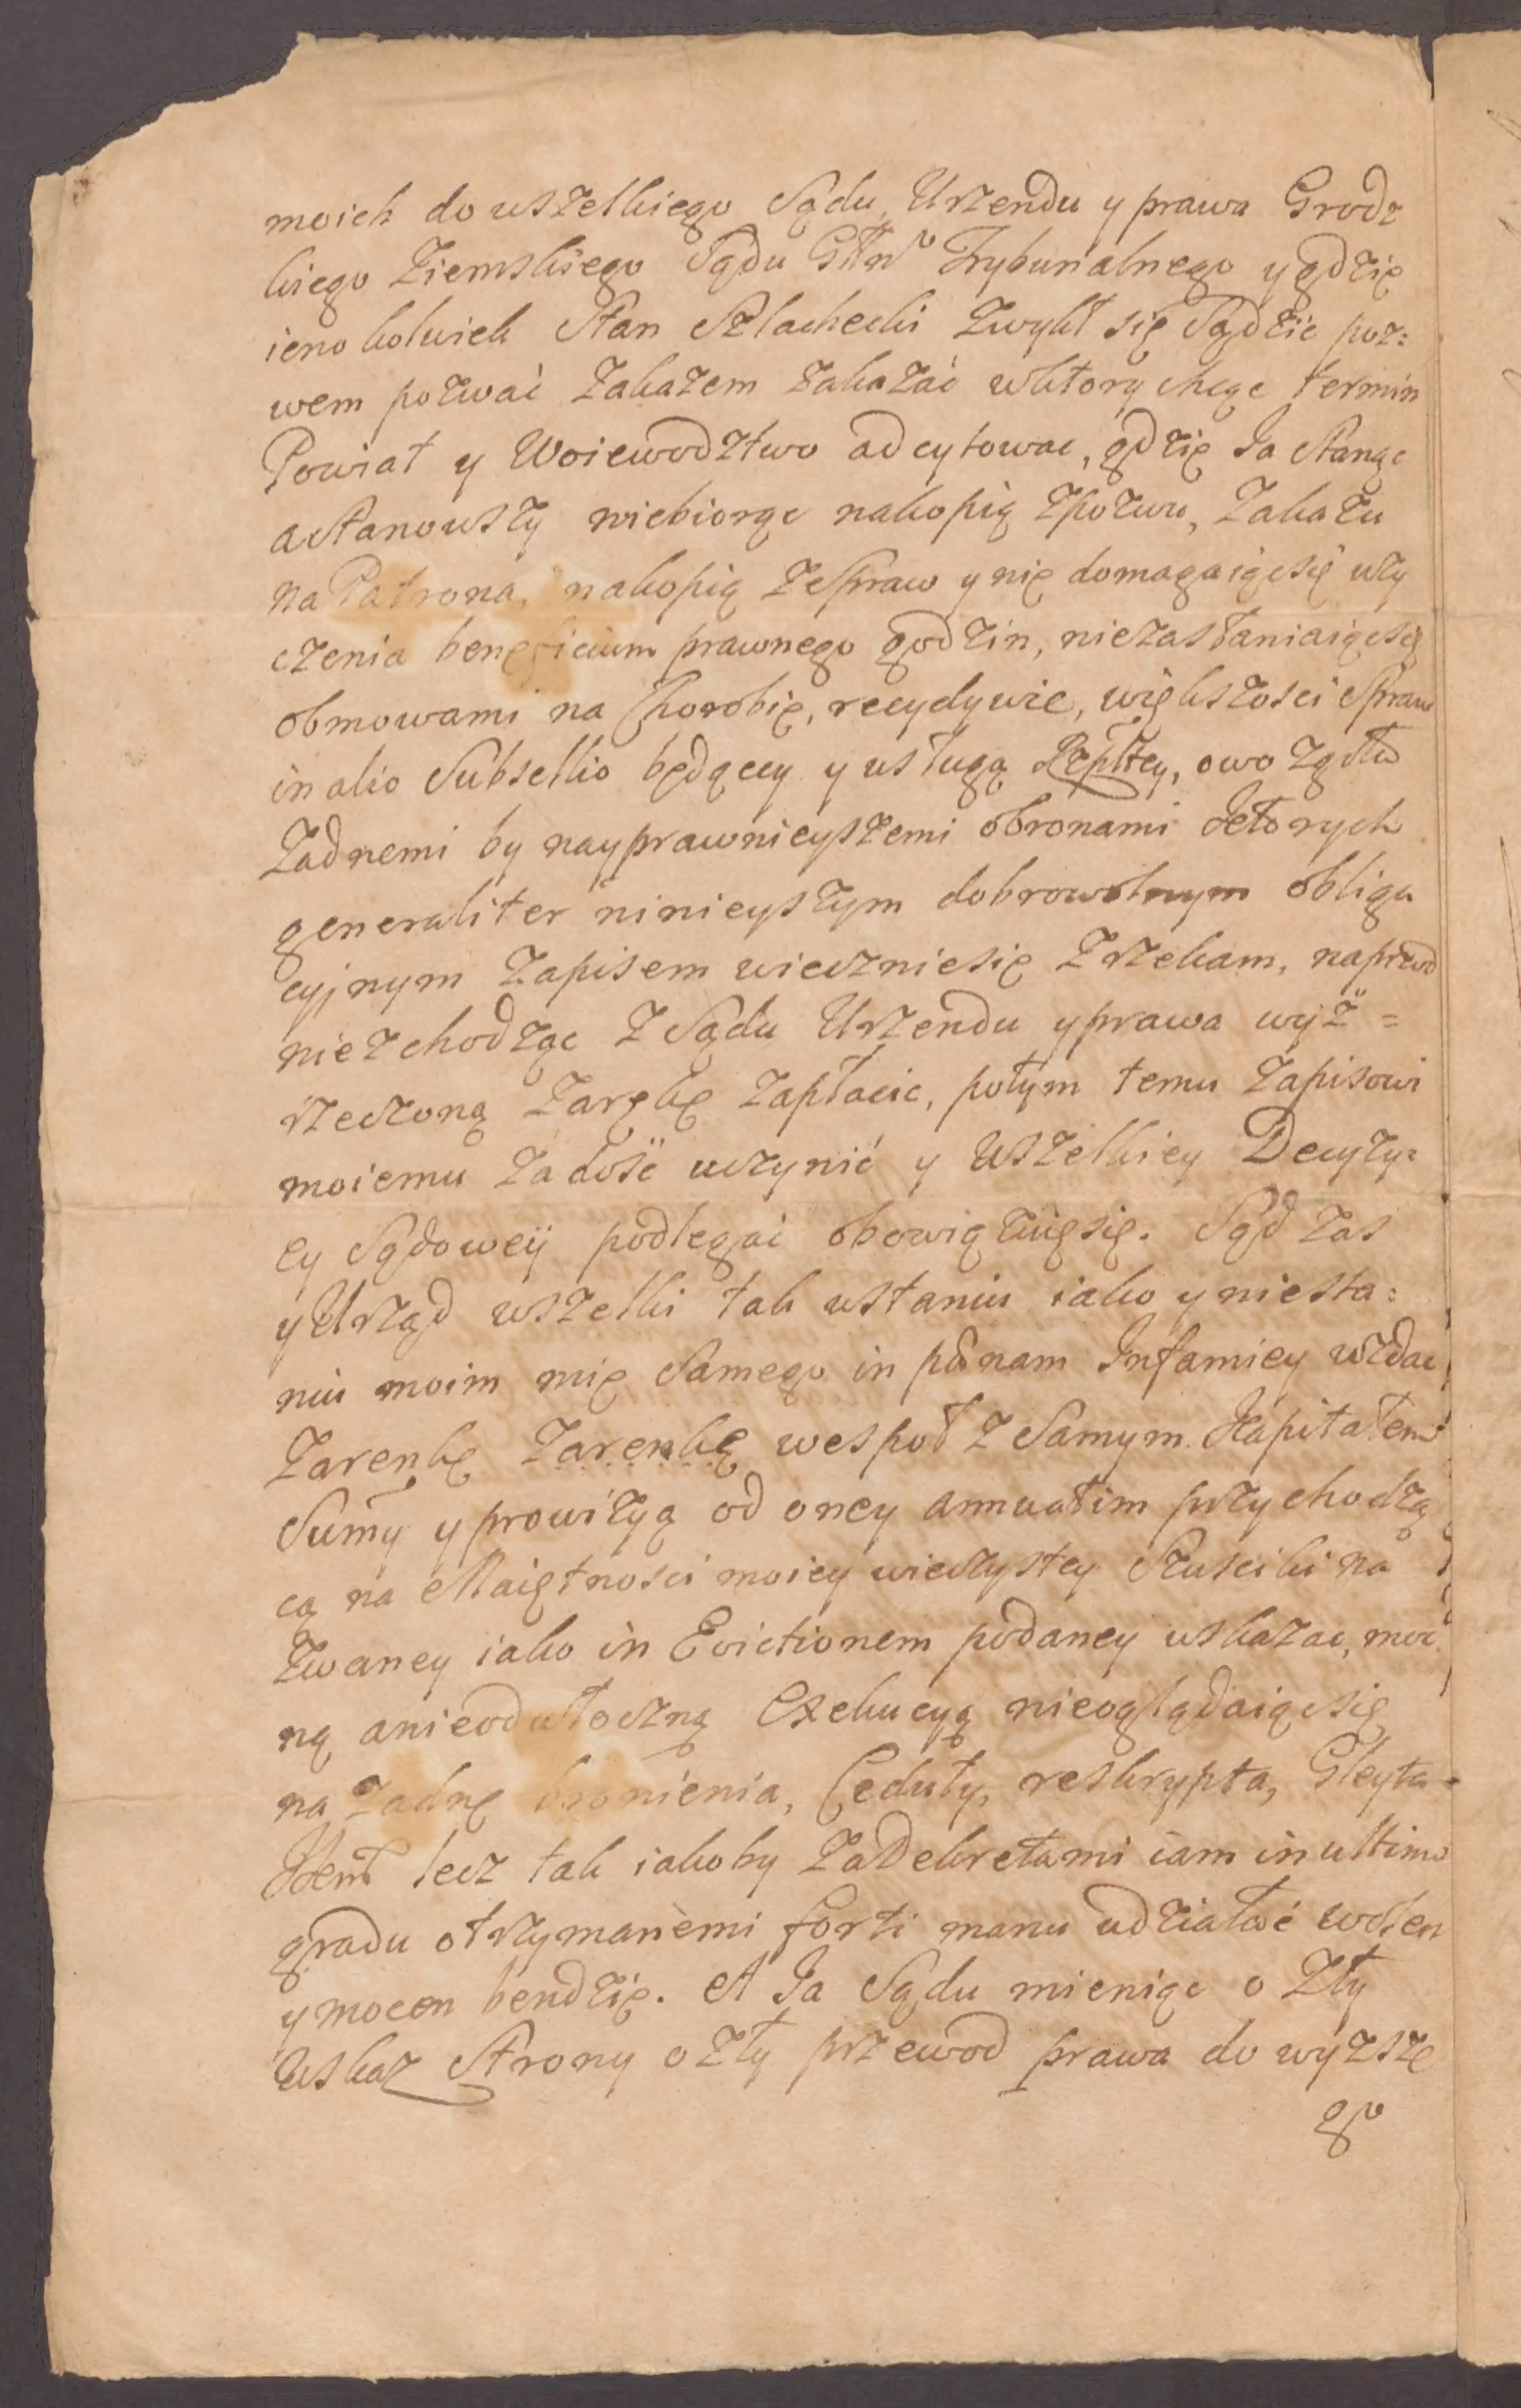 moich do wszelkiego Sądu, Urzendu y prawa Grodz
kiego Ziemskiego Sądu Głłno Trybunalnego y gdzię
ieno kolwiek Stan Szlachecki Zwykł się Sądzić poz:
wem pozwać Zakazem zakazać wktorą chcąc termin
Powiat y Woiewodztwo adcytowac, gdzię Ja Stanąc
aStanowszy niebiorąc nakopią Zpozwu, Zakazu
na Patrona, nakopią ze Spraw y nię domagaiącsię uży
czenia beneficium prawnego godzin, niezasłaniaiącsię
obmowami na Chorobię, recydywie, większości Spraw
in alio Subsellio będącey y usługą Rzpltey, owo zgoła
Żadnemi by nayprawnieyszemi obronami Ktorych
generaliter ninieyszym dobrowolnym obliga
cyjnym Zapisem wieczniesię Zrzekam, naprzod
nieschodząc Z Sądu Urzendu y prawa wyż =
rzeczoną Zarękę Zapłacic, potym temu Zapisowi
moiemu Zadość uczynić y Wszelkiey Decyzy:
ey Sądoweÿ podlegać obowiązuięsię. Sąd Zas
y Urząd wszelki tak wstaniu iako y niesta:
niu moim mię Samego in pænam Infamiey wzdac
Zarenkę Zarenkę wespoł z Samym Kapitałem
Sumy y prowizyą od oney annuatim przychodzą
cą na Maiętności moiey wieczystey Szusciki na
Zwaney iako in Evictionem podaney wskazac, moc
ną anieodwłoczną Exekucyą nieoglądaiącsię
na Żadnę bronienia, Ceduły, reskrypta, Gleyta
Kent lecz tak iakoby Za Dekretami iam in ultimo
gradu otrzymanemi forti manu udziałać wolen
y mocen bendzię. A Ja Sądu mieniąc o Zły
Wskaz Strony o Zły przewod prawa do wyższe
go